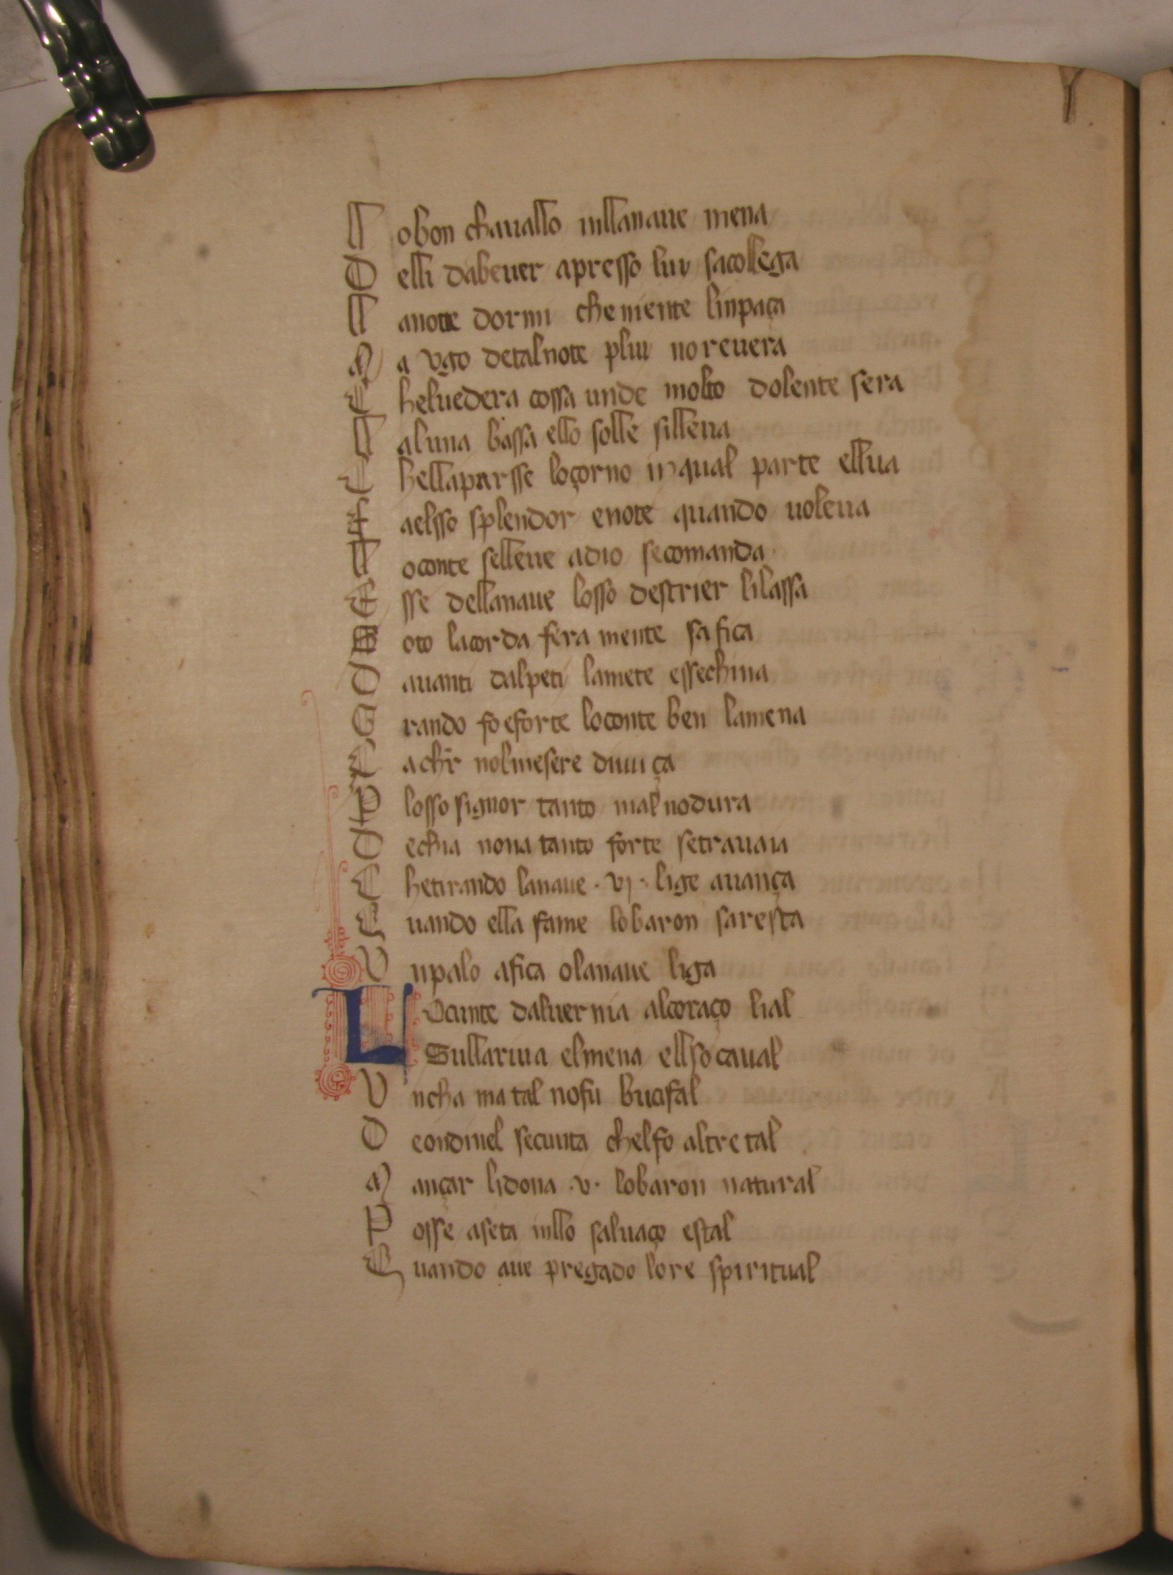 L obon chauallo inllanaue mena
D elli dabeuer apresso luy sacollega
L anote dormi che niente linpaça
M a vgo detalnote plui no reuera
C heluedera cossa unde molto dolente sera
L aluna bassa ello solle silleua
C hellaparsse loçorno in qual parte ellua
F aelsso splendor enote quando uoleua
L oconte selleue adio secomanda
E sse dellanaue losso destrier lilassa
T oto lacorda fera mente safica
D auanti dalpeti lamete essechina
G rando foeforte loconte ben lamena
C a chr nolmesere diuiça
P losso signor tanto mal nodura
D echia nona tanto forte setrauaia
C hetirando lanaue · vi · lige auança
Q uando ella fame lobaron saresta
V npalo afica olanaue liga
L Ocunte daluernia alcoraço lial
Sullariua elmena ellso caual
V ncha ma tal nofu bucifal
D eondinel secunta chelfo altretal
M ançar lidona · v · lobaron natural
P osse aseta inllo saluaço estal
Q uando aue pregado lore spiritual